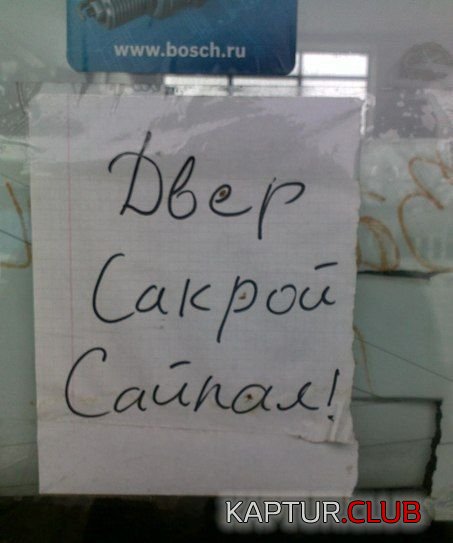 www.bosch.ru
Двер
Сакрой
Сайпал!
KAPTUR.CLUB